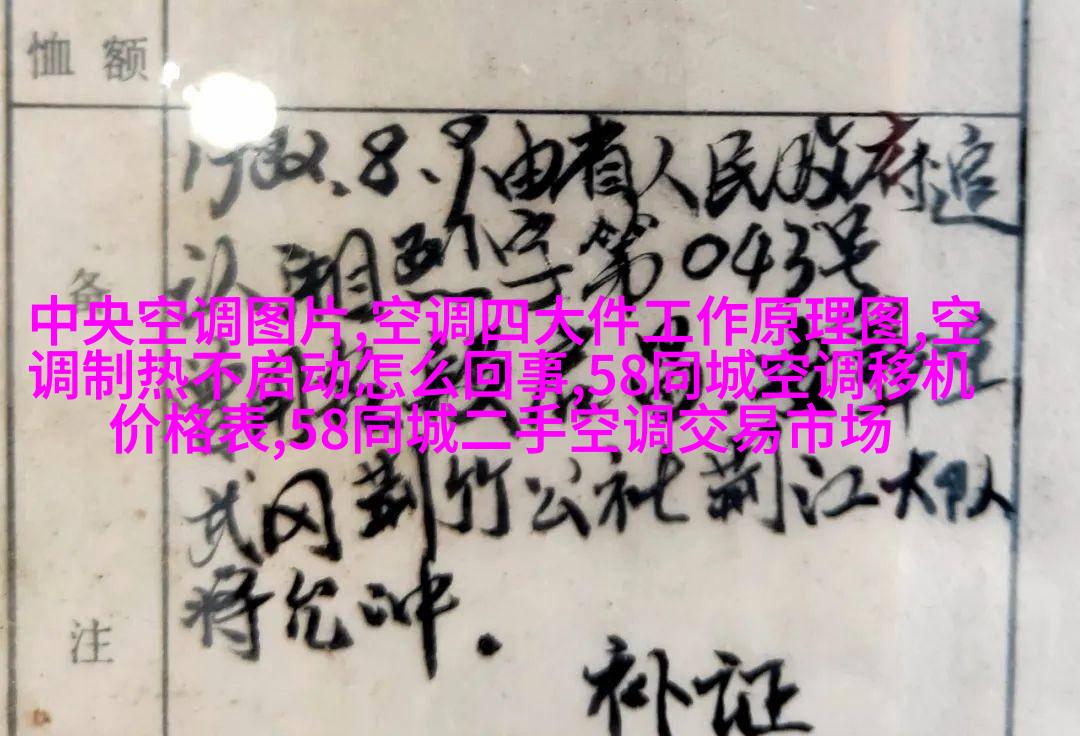 恤额
1982.8.9由省人民政府追
认湘烈字第043号
备
中央空调图片,空调四大件工作原理图,空
调制热不启动怎么回事,58同城空调移机
价格表,58同城二手空调交易市场
武冈荆竹公社荆江大队
蒋允冲.
注
补证